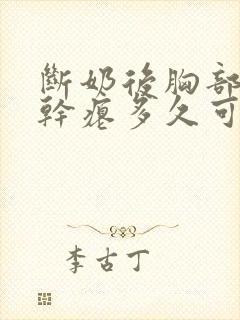 斷奶後胸部
幹瘪多久可
李古丁